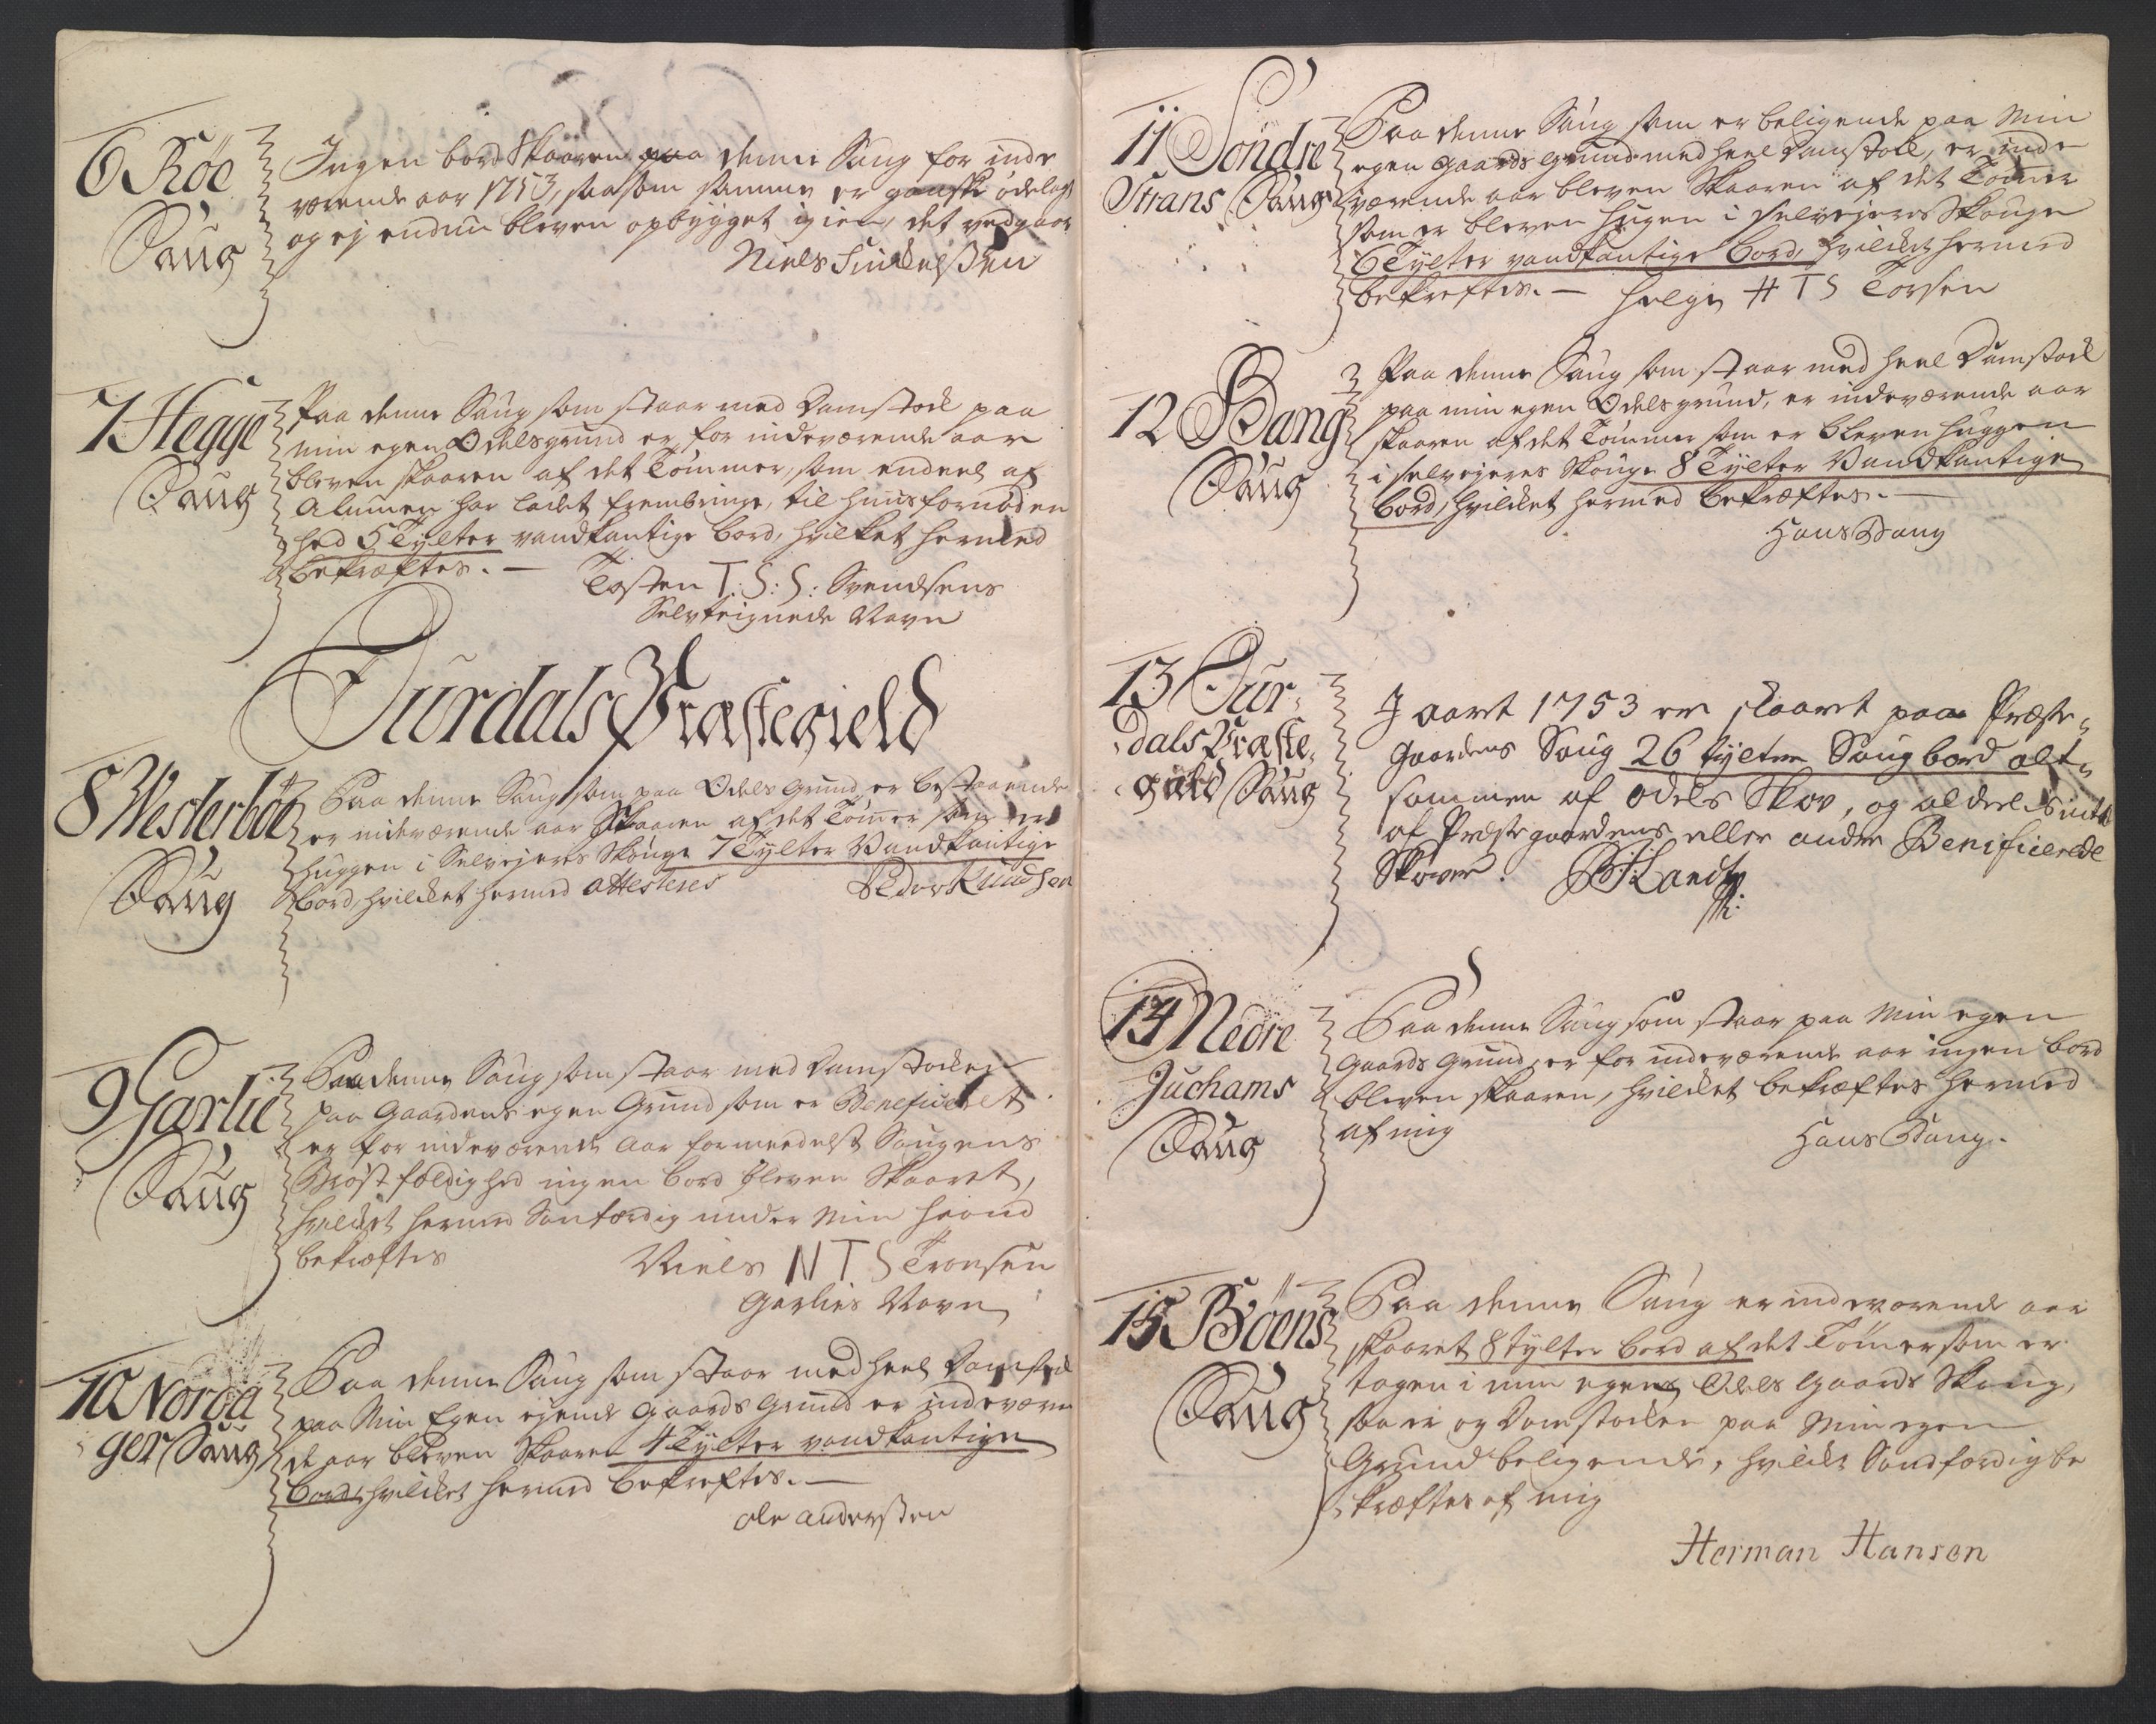 6 Röe
Saug
Ingen bord Skaaren paa denne Saug for inde
værende aar 1753, saasom samme er ganske ödelagt
og ej endnu bleven opbygget igien, det vedgaar
Niels
7 Hegge
Saug
Paa denne Saug som staar med Damstock paa
min egen Odelsgrund er for indeværende aar
bleven skaaren af det Tömmer, som endeel af
Almuen har ladet frembringe, til huusfornöden
hed 5 Tylter vandkantige bord, hvilket hermed
bekræftes. —
Tosten T: S: S: Svendsens
Selvteignede Navn
Aurdals Præstegield
8 Westerböe
Saug
Paa denne Saug som paa Odels Grund er bestaaende
er indeværende aar Skaaren af det Tömmer som er
huggen i Selvejeres Skouge 7 Tylter Vandkantige
bord, hvilket hermed attesteres
Peder Knudsen
9 Garlie
Saug
Paa denne Saug som staar med Damstocken
paa Gaardens egen Grund som er Beneficeret
er for indeværende Aar formedelst Saugens
Bröstfældighed ingen bord bleven Skaaret,
hvilket hermed Sanfærdig under Min haand
bekræftes
Niels N T S Tronsen
Garlies Navn
10 Noraa
ger Saug
Paa denne Saug som staar med heel Damstock
paa Min Egen ejende Gaards Grund er indeværen
de aar bleven Skaaren 4 Tylter vandkantige
bord, hvilket hermed bekreftes. —
ole anderssen
11 Söndre
Strans Saug
Paa denne Saug som er beligende paa Min
egen Gaards grund med heel Damstock, er inde
værende aar bleven Skaaren af det Tömmer
som er bleven hugen i Selvejeres Skouge
6 Tylter vandkantige bord, hvilket hermed
bekreftes. — Helge H T S Torsen
12 Bang
Saug
Paa denne Saug som staar med heel Damstock
paa min egen Odelsgrund, er indeværende aar
skaaren af det Tömmer som er bleven huggen
i selvejeres Skouge 8 Tylter Vandkantige
bord, hvilket hermed bekræftes. —
Hans Bang
13 Aur-
dals Præste-
gield Saug
I aaret 1753 er skaaret paa Præste-
gaardens Saug 26 tylter Saugbord alt-
sammen af odels Skov, og aldeeles intet
af Præstegaardens eller andre Beneficerede
Skover.
14 Nedre
Juchams
Saug
Paa denne Saug som staar paa Min egen
Gaards Grund, er for indeværende aar ingen bord
bleven skaaren, hvilket bekræftes hermed
af mig
Hans Bang.
15 Böens
Saug
Paa denne Saug er indeværende aar
skaaret 8 tylter bord af det Tömer som er
tagen i min egen Odels Gaards Skoug,
saa er og Damstocken paa Min egen
Grund beligende, hvilket Sandfærdig be
kræftes af mig
Herman Hansen